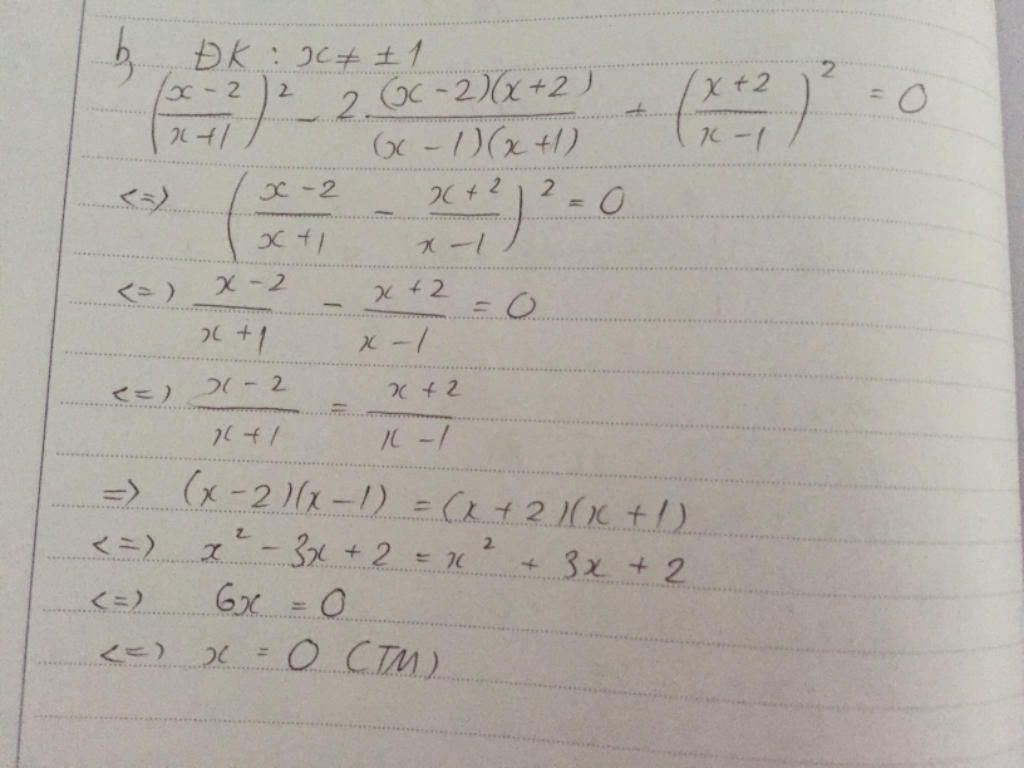 b, ĐK : x ≠ ± 1
((x - 2)/(x + 1))² - 2 ((x - 2)(x + 2))/((x - 1)(x + 1)) + ((x + 2)/(x - 1))² = 0
<=> ((x - 2)/(x + 1) - (x + 2)/(x - 1))² = 0
<=> (x - 2)/(x + 1) - (x + 2)/(x - 1) = 0
<=> (x - 2)/(x + 1) = (x + 2)/(x - 1)
=> (x - 2)(x - 1) = (x + 2)(x + 1)
<=> x² - 3x + 2 = x² + 3x + 2
<=> 6x = 0
<=> x = 0 (TM)